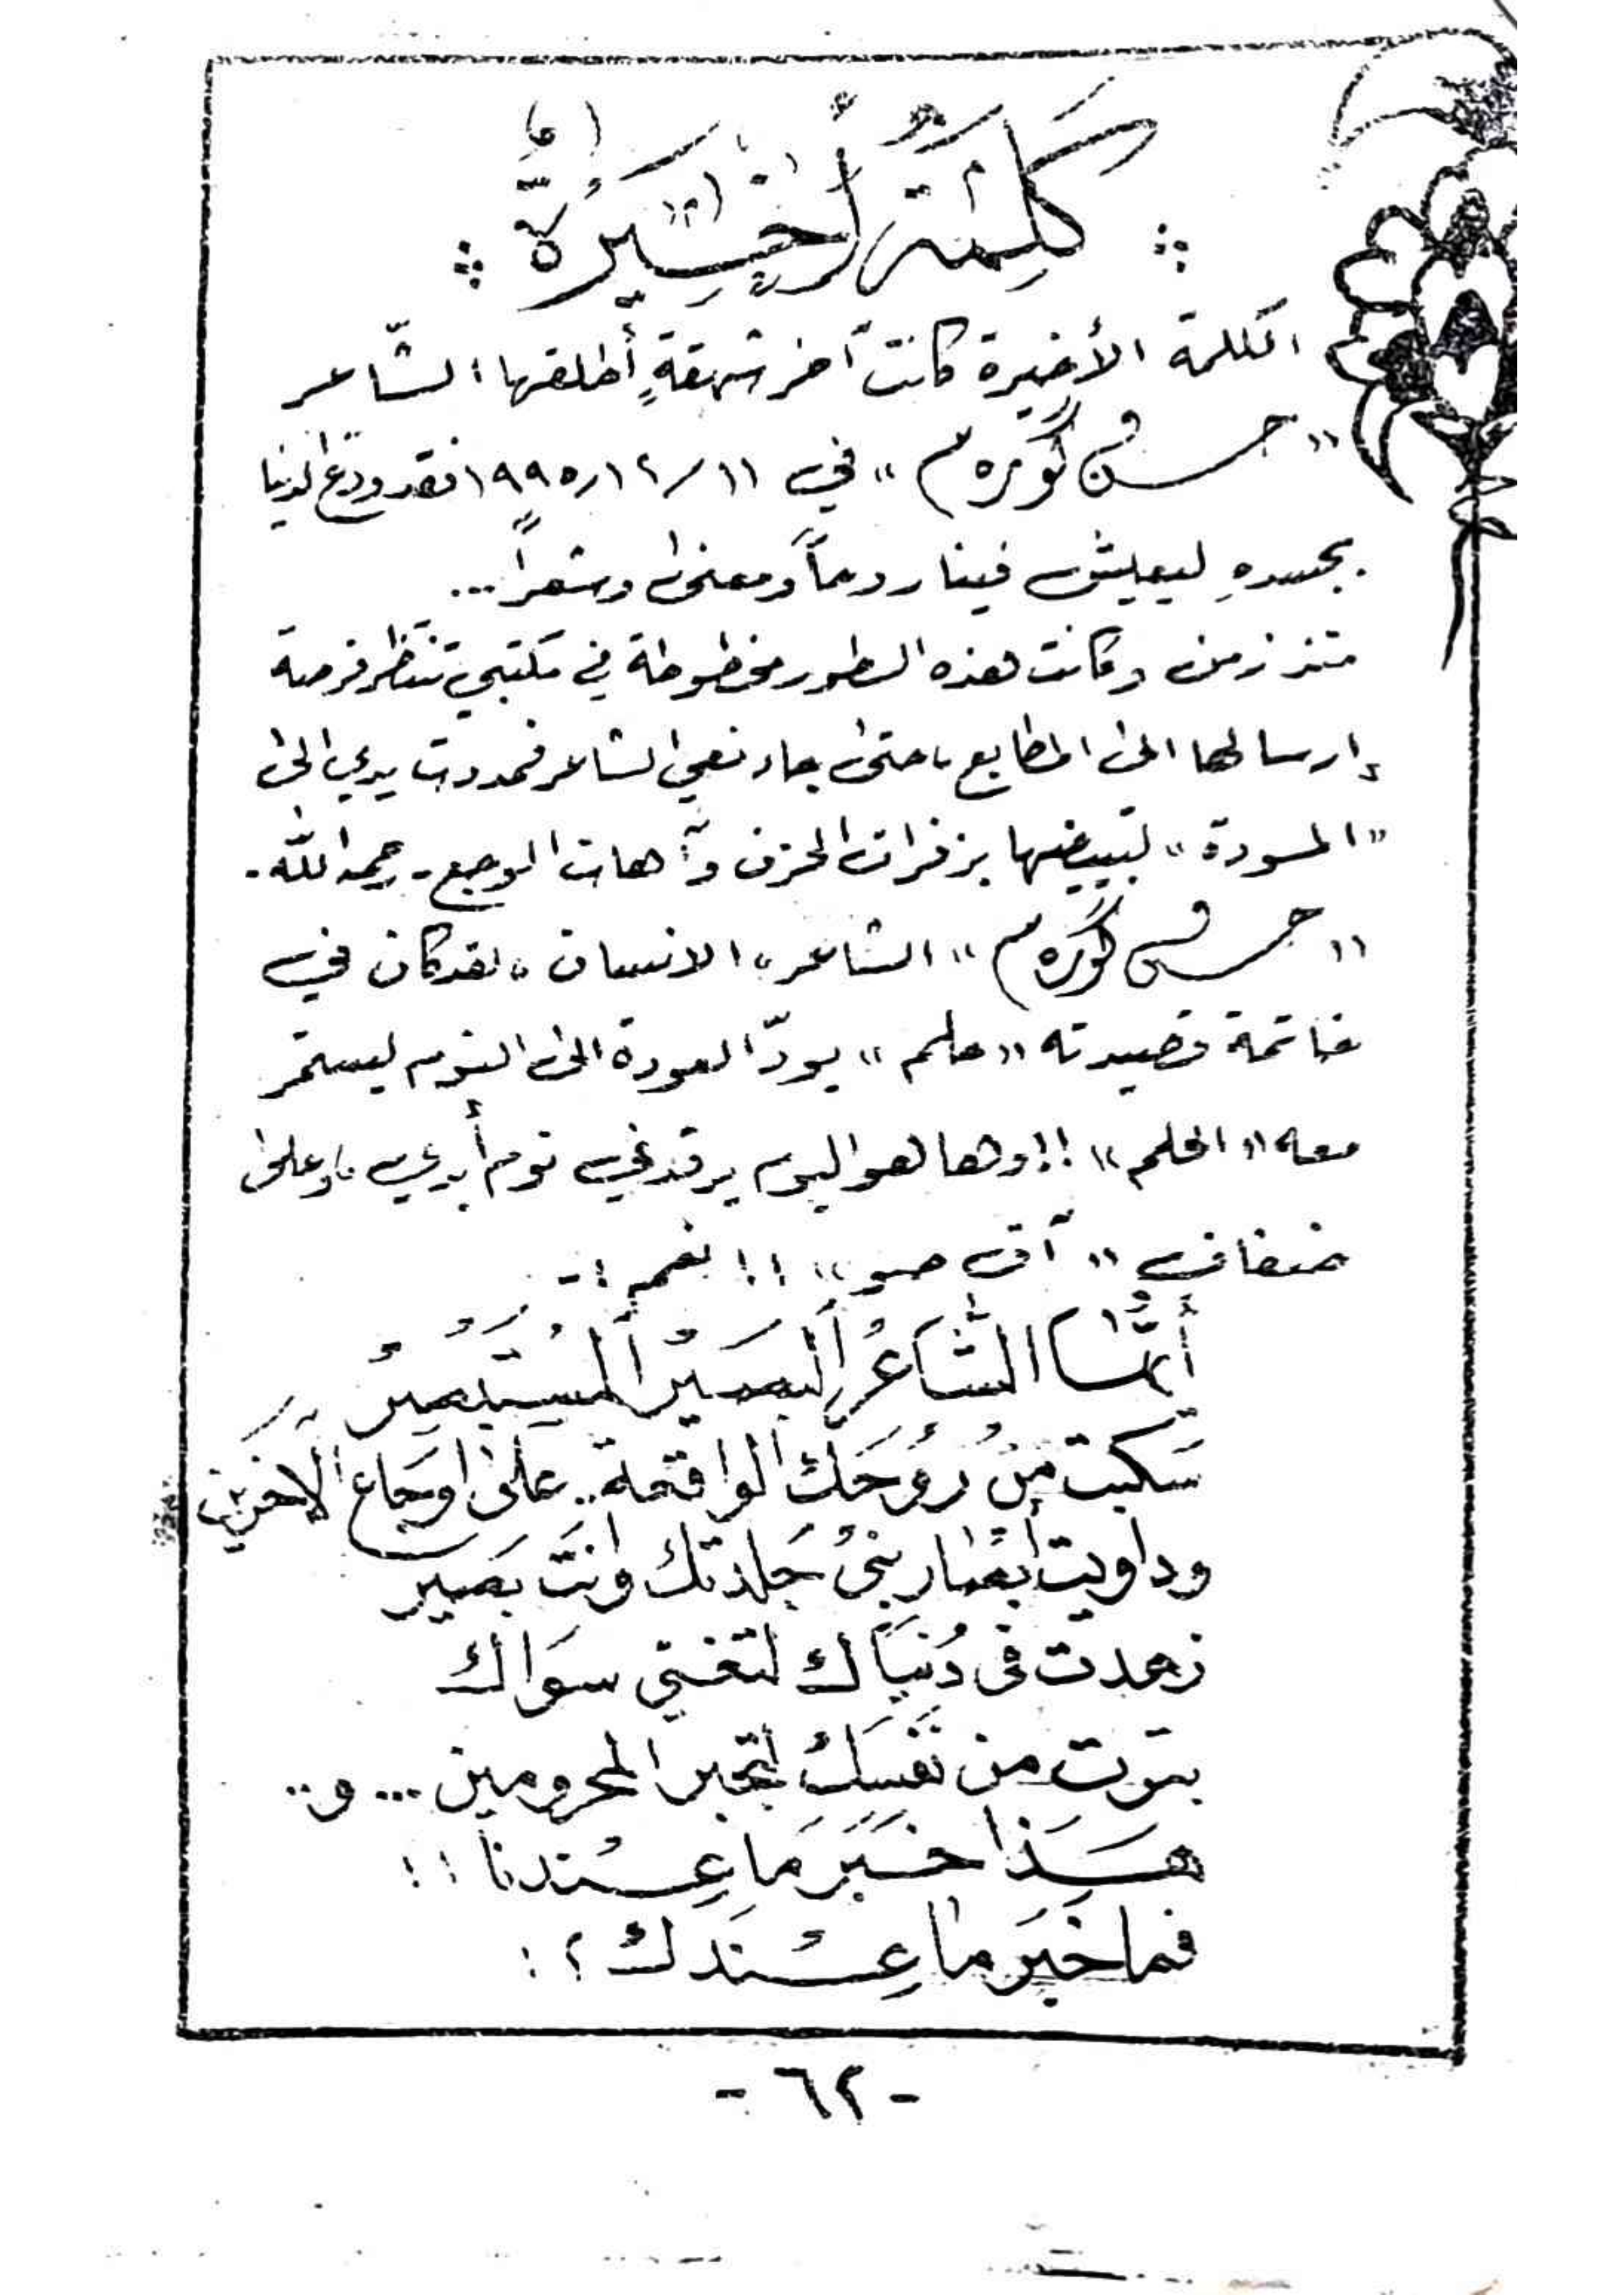 كَلِمَةٌ أَخِيرَةٌ
الكلمة الأخيرة كانت آخر شهقةٍ أطلقها الشّاعر
"حسن گوره م" في ١١/١٢/١٩٩٥ فقد ودّع الدنيا
بجسدهِ ليعيش فينا روحاً ومعنىً وشعراً...
منذ زمن وكانت هذه السطور مخطوطة في مكتبي تنتظر فرصة
إرسالها الى المطابع، حتى جاء نعي الشاعر فمددت يدي الى
"المسودة" لتبييضها بزفرات الحزن وآهات الموجع - رحمه اللّه -
"حسن گوره م" الشاعر، الانسان، لقد كان في
خاتمة قصيدته "حلم" يودّ العودة الى النوم ليستمر
معه "الحلم"!! وها هو اليوم يرقد في نوم أبدي، وعلى
ضفاف "آق صو"!! نعم:-
أَيُّها الشَّاعُر البَصيْر المُسْتَبْصِيرُ
سَكبت مِنْ رُوْحَك الواقحة.. على اوجَاع الآخَرين
وداويت أبْصار بنىْ جَلدتك وانتَ بَصير
زهدت فى دُنيَاك لتغني سوَاك
بترت من نَفسَكْ لتجبر المحرومين ... و..
هَذا خَبَر مَا عِنْدنا!!
فما خَبَر ما عِنْدَكْ؟!
-٦٢-